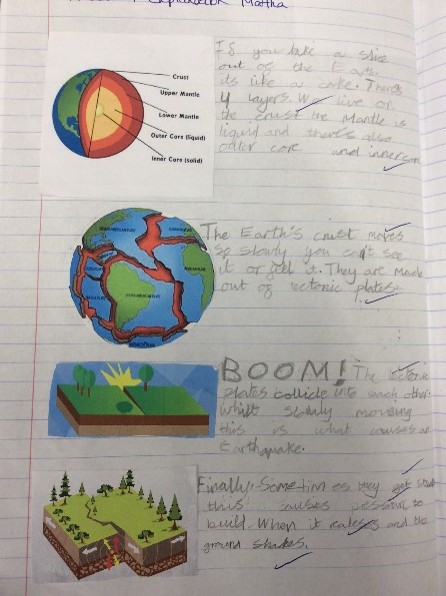 Explanation Martha
If you take a slice
out of the Earth
its like a cake. There's
4 layers. We live on
the crust the Mantle is
liquid and there's also
outer core and inner core
Crust
Upper Mantle
Lower Mantle
Outer Core (liquid)
Inner Core (solid)
The Earth's crust moves
so slowly you can't see
it or feel it. They are made
out of tectonic plates.
BOOM! The tectonic
plates collide into each other
whilt slowly moving
this is what causes an
Earthquake.
Finally. Sometimes they get stuck
this causes pessure to
build. When it realeses and the
ground shakes.